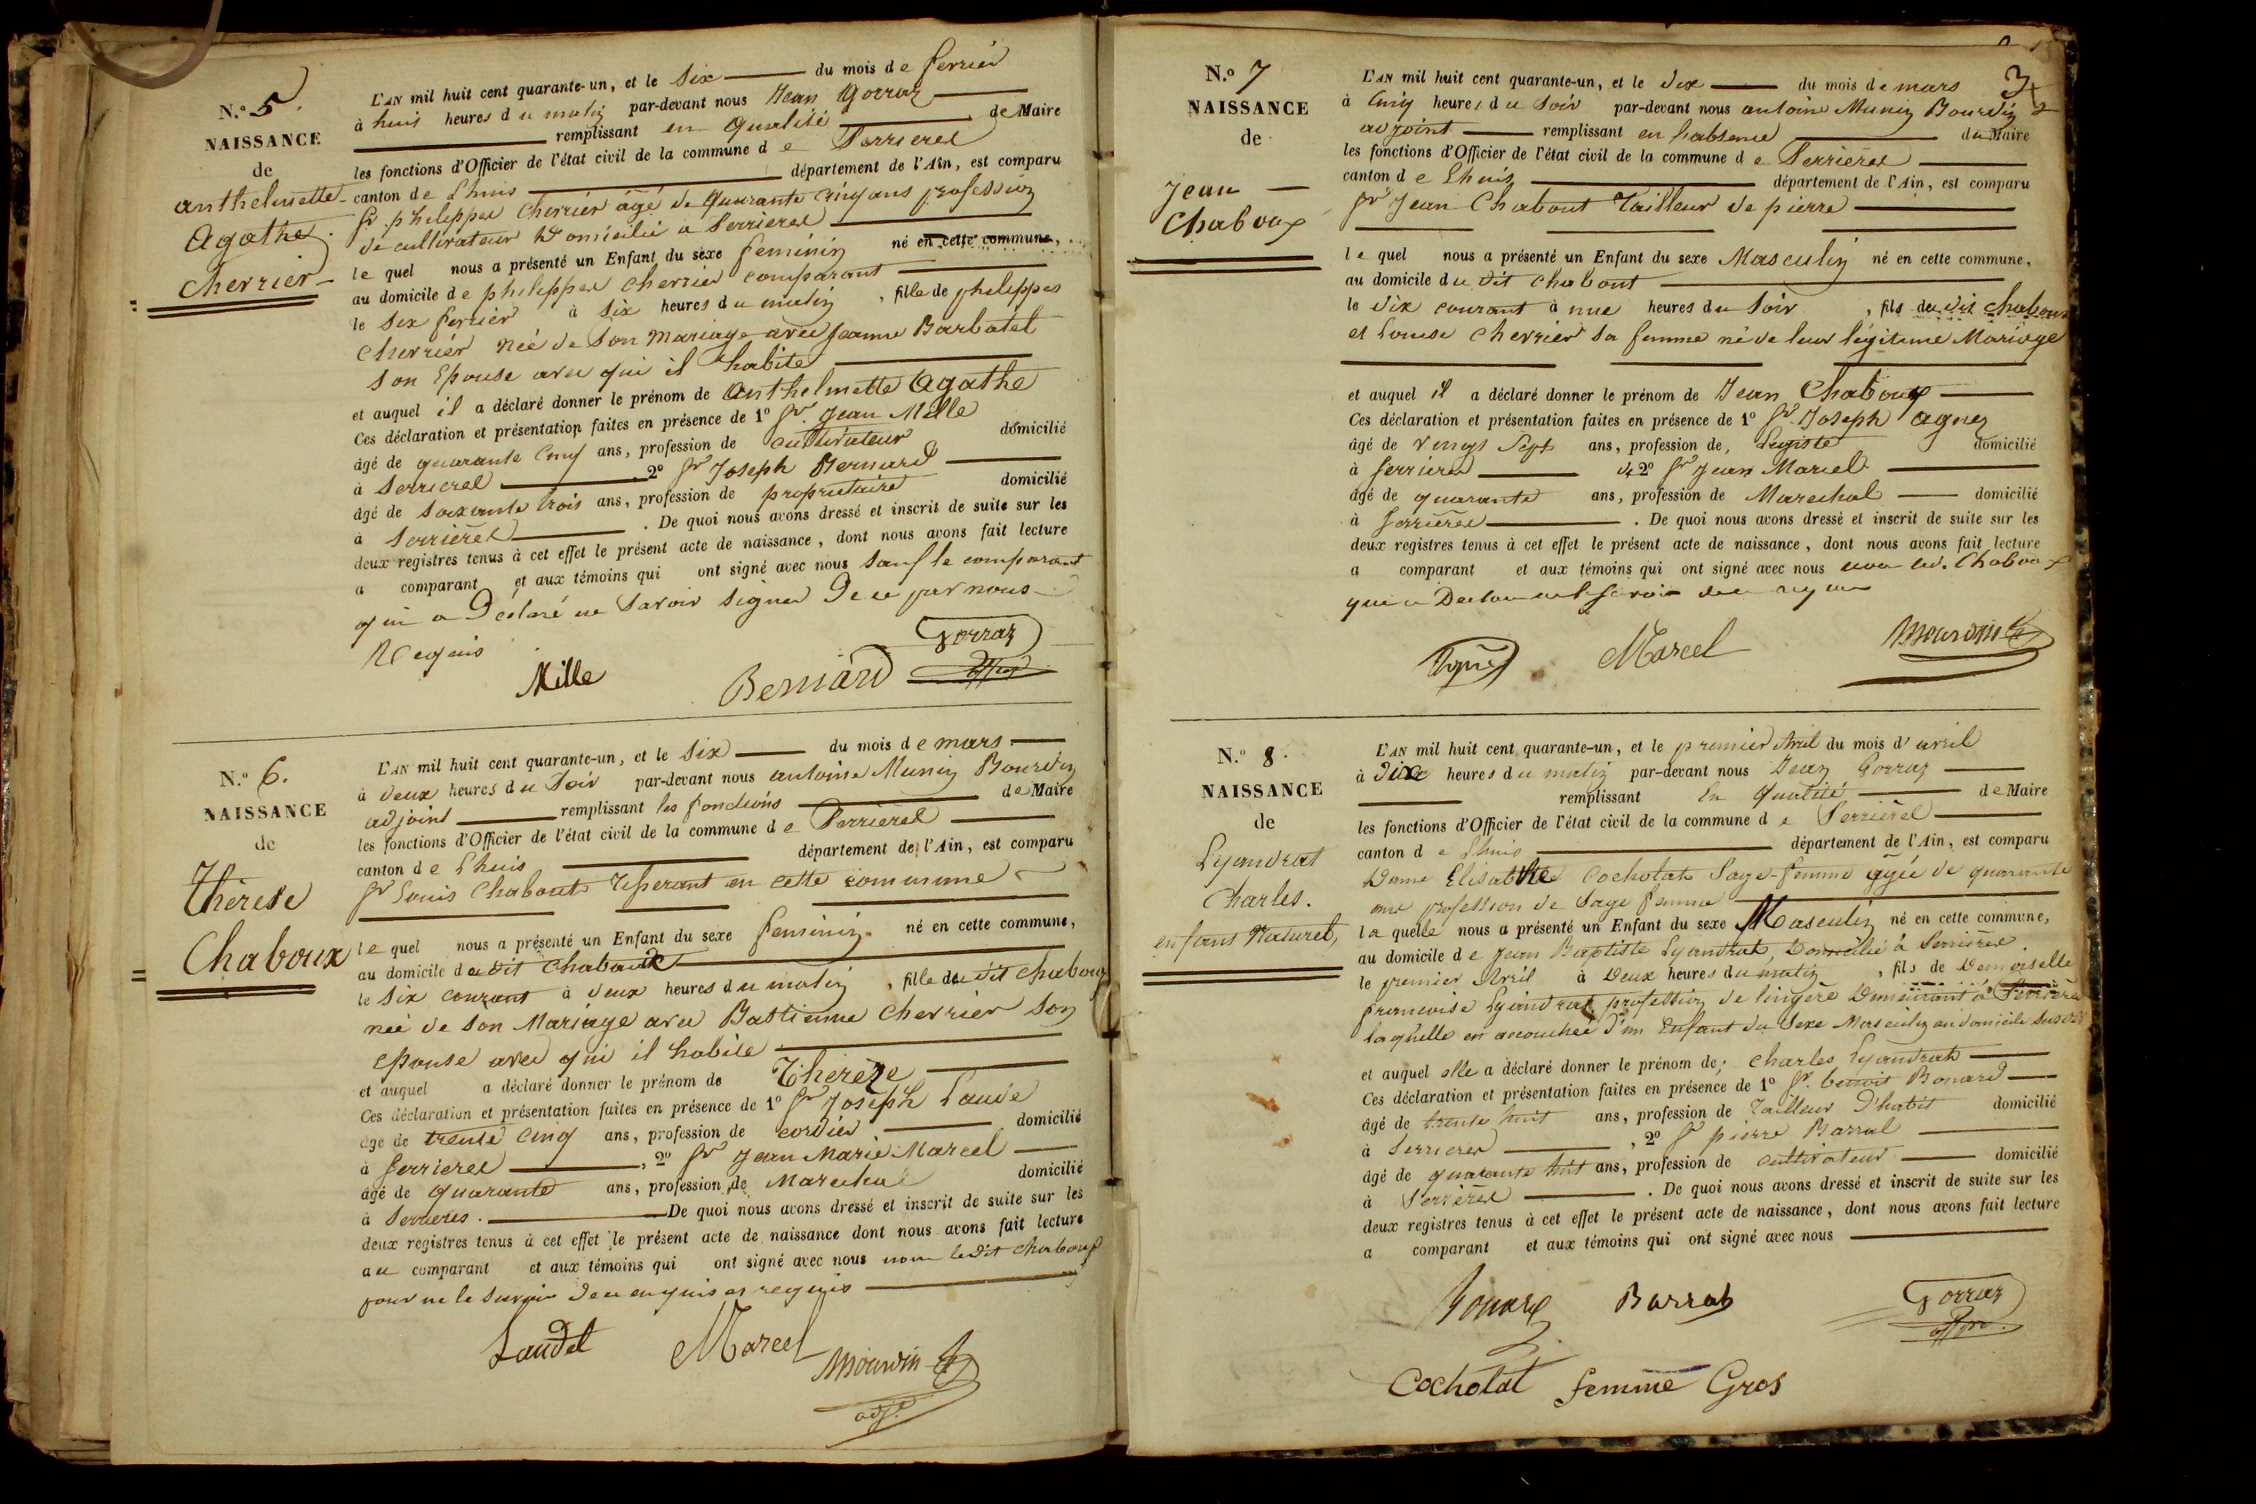 N.º 5.
NAISSANCE
de
anthelmette
Agathe
Cherrier
L'AN mil huit cent quarante-un, et le six du mois de fevrier
à huis heures du matin par-devant nous Jean Gorraz
remplissant en qualité de Maire
les fonctions d'Officier de l'état civil de la commune de Serrieres
canton de Lhuis département de l'Ain, est comparu
Sr. philippes Cherrier âgé de quarante cinq ans profession
de cultivateur Domicilié a Serrieres
le quel nous a présenté un Enfant du sexe feminin né en cette commune,
au domicile de philippes cherrier comparant
le six fevrier à six heures du matin, fille de philippes
Cherrier née de son mariage avec Jeanne Barbatet
son Epouse avec qui il habite
et auquel il a déclaré donner le prénom de Anthelmette Agathe
Ces déclaration et présentation faites en présence de 1º Sr Jean Mille
âgé de quarante cinq ans, profession de cultivateur domicilié
à Serrieres 2º Sr Joseph Bernard
âgé de soixante trois ans, profession de proprietaire domicilié
à Serrieres. De quoi nous avons dressé et inscrit de suite sur les
deux registres tenus à cet effet le présent acte de naissance, dont nous avons fait lecture
a comparant et aux témoins qui ont signé avec nous sauf le comparant
qui a Déclaré ne savoir signer De ce par nous
Requis
Mille Bernard Gorraz
N.º 6.
NAISSANCE
de
Thérese
Chaboux
L'AN mil huit cent quarante-un, et le six du mois de mars
à deux heures du soir par-devant nous antoine Munin Bourdin
adjoint remplissant les fonctions de Maire
les fonctions d'Officier de l'état civil de la commune de Serrieres
canton de Lhuis département de l'Ain, est comparu
Sr Louis Chabout en cette commune
le quel nous a présenté un Enfant du sexe feminin né en cette commune,
au domicile du dit Chaboux
le six courant à deux heures du matin, fille du dit chaboux
née de son Mariage avec Bastienne Cherrier son
epouse avec qui il habite
et auquel a déclaré donner le prénom de Thereze
Ces déclaration et présentation faites en présence de 1º Sr Joseph Laude
âgé de trente cinq ans, profession de cordier domicilié
à Serrieres, 2º Sr Jean Marie Marcel
âgé de quarante ans, profession de Marechal domicilié
à Serrieres. De quoi nous avons dressé et inscrit de suite sur les
deux registres tenus à cet effet le présent acte de naissance dont nous avons fait lecture
au comparant et aux témoins qui ont signé avec nous non ledit chaboux
pour ne le savoir de ce enquis et requis
Laudet Marcel Mourdin
adj.
3
N.º 7
NAISSANCE
de
Jean
Chaboux
L'AN mil huit cent quarante-un, et le dix du mois de mars
à Cinq heures du soir par-devant nous antoine Munin Bourdin
adjoint remplissant en l'absence du Maire
les fonctions d'Officier de l'état civil de la commune de Serrieres
canton de Lhuis département de l'Ain, est comparu
Sr Jean Chabout Tailleur de pierre
le quel nous a présenté un Enfant du sexe Masculin né en cette commune,
au domicile du dit chabout
le dix courant à une heures du soir, fils du dit chaboux
et Louise Cherrier sa femme né de leur légitime Mariage
et auquel il a déclaré donner le prénom de Jean Chaboux
Ces déclaration et présentation faites en présence de 1º Sr. Joseph agnez
âgé de vingt sept ans, profession de, domicilié
à Serrieres & 2º Sr Jean Marcel
âgé de quarante ans, profession de Marechal domicilié
à Serrieres. De quoi nous avons dressé et inscrit de suite sur les
deux registres tenus à cet effet le présent acte de naissance, dont nous avons fait lecture
a comparant et aux témoins qui ont signé avec nous Chaboux
qui a Declaré
Marcel Mourdin
N.º 8.
NAISSANCE
de
Lyandrat
Charles.
enfant Naturel,
L'AN mil huit cent quarante-un, et le premier Avril du mois d'avril
à Dixe heures du matin par-devant nous Jean Gorraz
remplissant en Qualité de Maire
les fonctions d'Officier de l'état civil de la commune de Serrieres
canton de Lhuis département de l'Ain, est comparu
Dame Elisabthe Cochotat Sage-femme agée de quarante
profession de Sage femme
la quelle nous a présenté un Enfant du sexe Masculin né en cette commune,
au domicile de Jean Baptiste Lyandrat, Domicilié à Serrieres
le premier Avril à Deux heures du matin, fils de Demoiselle
francoise Lyandrat profession de lingère Demeurant à Serrieres
laquelle est accouchée d'un Enfant du sexe Masculin au domicile susdit
et auquel elle a déclaré donner le prénom de; Charles Lyandrat
Ces déclaration et présentation faites en présence de 1º Sr. benoit Bonard
âgé de trente huit ans, profession de Tailleur D'habit domicilié
à Serrieres, 2º Sr pierre Barral
âgé de quarante huit ans, profession de cultivateur domicilié
à Serrieres. De quoi nous avons dressé et inscrit de suite sur les
deux registres tenus à cet effet le présent acte de naissance, dont nous avons fait lecture
a comparant et aux témoins qui ont signé avec nous
Bonard Barrat Gorraz
Cochotat femme Gros